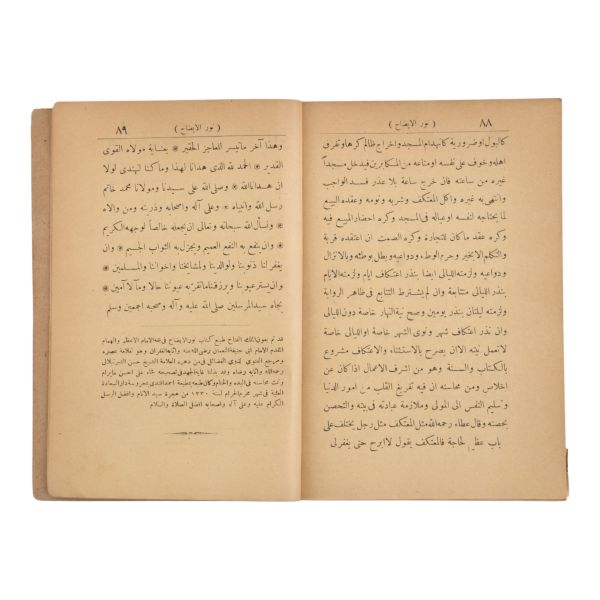 ٨٨
( نور الايضاح )
كالبول او ضرورية كانهدام المسجد واخراج ظالم كرها وتفرق
اهله وخوف على نفسه او متاعه من المكابرين فيدخل مسجداً
غيره من ساعته فان خرج ساعة بلا عذر فسد الواجب
وانتهى به غيره واكل المعتكف وشربه ونومه وعقده البيع
لما يحتاجه لنفسه او عياله فى المسجد وكره احضار المبيع فيه
وكره عقد ما كان للتجارة وكره الصمت ان اعتقده قربة
والتكلم الا بخير وحرم الوطء ودواعيه وبطل بوطئه وبالانزال
بدواعيه ولزمته الليالى ايضا بنذر اعتكاف ايام ولزمته الايام
بنذر الليالى متتابعة وان لم يشترط التتابع فى ظاهر الرواية
ولزمته ليلتان بنذر يومين وصح نية النهار خاصة دون الليالى
وان نذر اعتكاف شهر ونوى الشهر خاصة او الليالى خاصة
لا تعمل نيته الا ان يصرح بالاستثناء والاعتكاف مشروع
بالكتاب والسنة وهو من اشرف الاعمال اذا كان عن
اخلاص ومن محاسنه ان فيه تفريغ القلب من امور الدنيا
وتسليم النفس الى المولى وملازمة عبادته فى بيته والتحصن
بحصنه وقال عطاء رحمه الله مثل المعتكف مثل رجل يختلف على
باب عظيم لحاجة فالمعتكف يقول لا ابرح حتى يغفر لى
٨٩
( نور الايضاح )
وهذا آخر ما تيسر للعاجز الحقير ❋ بعناية مولاه القوى
القدير ❋ الحمد لله الذى هدانا لهذا وما كنا لنهتدى لولا
ان هدانا الله ❋ وصلى الله على سيدنا ومولانا محمد خاتم
رسل الله وانبياه ❋ وعلى آله واصحابه وذريته ومن والاه
❋ ونسأل الله سبحانه وتعالى ان يجعله خالصاً لوجهه الكريم
❋ وان ينفع به النفع العميم ويجزل به الثواب الجسيم ❋ وان
يغفر لنا ذنوبنا ولوالدينا ولمشايخنا واخواننا والمسلمين ❋
وان يستر عيوبنا ويرزقنا ما تقر به عيوننا حالا ومآلا آمين ❋
بجاه سيد المرسلين صلى الله عليه وآله وصحبه اجمعين وسلم
قد تم بعون الملك الفتاح طبع كتاب نور الايضاح فى فقه الامام الاعظم والهمام
المقدم الامام ابى حنيفة النعمان رضى الله عنه واثابه الغفران وهو لعلامة عصره
ومرجع الفتوى لذوى الفضائل فى دهره العلامة الشيخ حسن الشرنبلالى
رحمه الله واثابه رضاه وقد بذلنا غاية الجهد فى تصحيحه
وتمت محاسنه فى البدء والختام وكان طبعه بمطبعة احمد افندى بمحروسة دار السعادة
العلية فى شهر محرم الحرام لسنة ١٣٣٠ من هجرة سيد الانام وافضل الرسل
الكرام عليه وعلى آله واصحابه افضل الصلاة والسلام